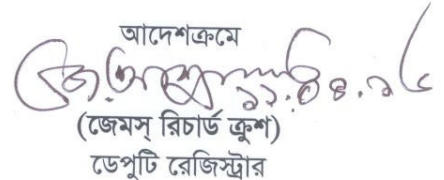 আদেশক্রমে
(জেমস্ রিচার্ড ক্রুশ)
ডেপুটি রেজিস্ট্রার